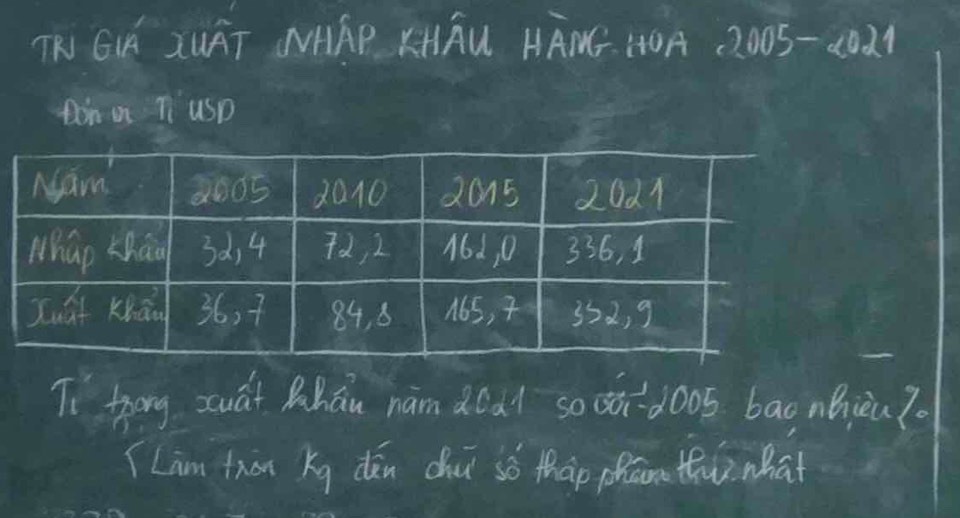 TRỊ GIÁ XUẤT NHẬP KHẨU HÀNG HÓA 2005-2021
Đơn vị Tỉ USD
Năm 2005 2010 2015 2021
Nhập khẩu 32,4 72,2 162,0 336,1
Xuất khẩu 36,7 84,8 165,7 352,9
Tỉ trọng xuất khẩu năm 2021 so với 2005 bao nhiêu %
(Làm tròn kq đến chữ số thập phân thứ nhất